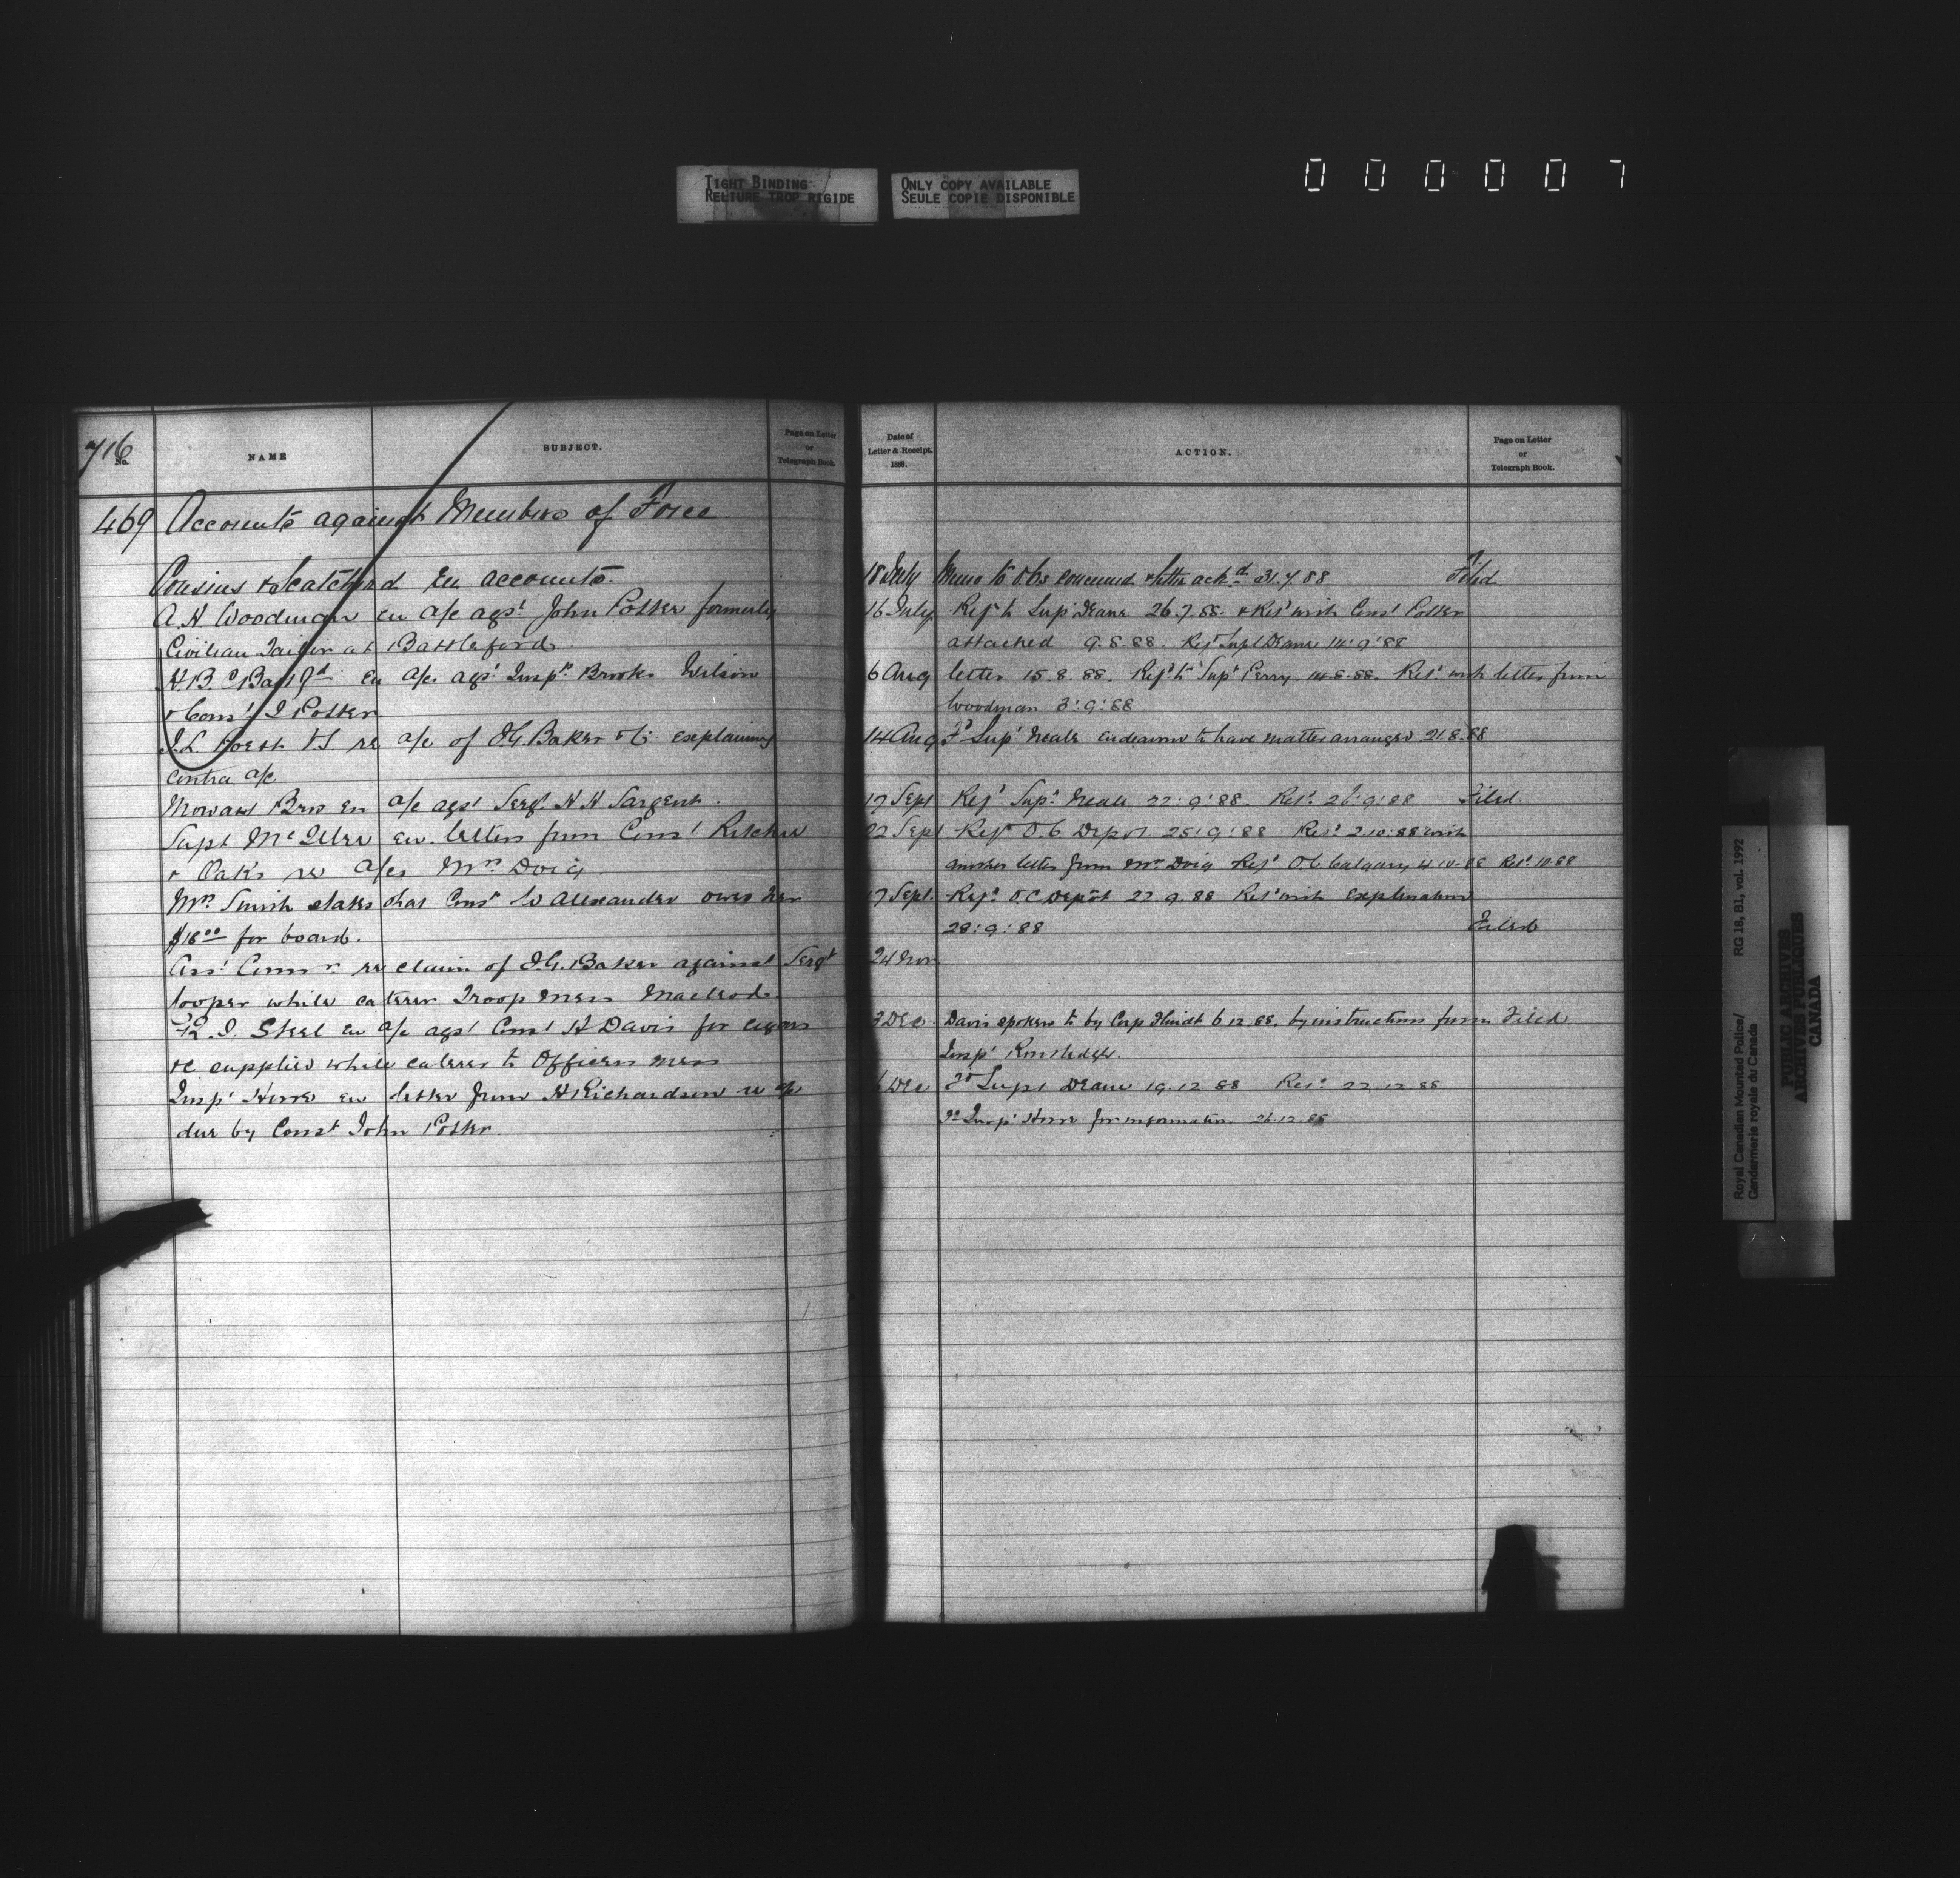 TIGHT BINDING
RELIURE TROP RIGIDE
ONLY COPY AVAILABLE
SEULE COPIE DISPONIBLE
000007
716
No.
NAME
SUBJECT.
Page on Letter
or
Telegraph Book.
469 Accounts against Members of Force
Cousins & Scatcherd En accounts
A. H. Woodman en a/c agst John Potter formerly
Civilian Tailor at Battleford
H.B. Co Batt'fd En a/c agst Inspr Brooks Wilson
& Const J Potter
a/c of I G. Baker & Co explaining
contra a/c
Mowat Bros En a/c agst Sergt H H Sargent.
Supt McIllree en. letters from Const Ritchie
& Oaks re a/cs Mrs Doig
Mrs Smith states that Const W Alexander owes her
$18.00 for board.
Asst Commr re claim of I.G. Baker against Sergt
Cooper while caterer Troop Mess Macleod
I. Steel En a/c agst Const H Davis for cigars
&c supplied while caterer to Officers mess
Insp Howe en letter from H Richardson re a/c
due by Const John Potter.
Date of
Letter & Receipt.
1888.
ACTION.
Page on Letter
or
Telegraph Book.
18 July Memo to O.Cs concerned & letter ackd 31.7.88 Filed
16 July Refd to Supt Deane 26.7.88. & Retd with Const Potter
attached 9.8.88. Refd Supt Deane 14.9.88
6 Aug letter 15.8.88. Refd to Supt Perry 14.8.88. Retd with letter from
Woodman 3.9.88
14 Aug To Supt Neale endeavour to have matter arranged 21.8.88
17 Sept Refd Supt Neale 22.9.88. Retd 26.9.88 Filed.
22 Sept Refd O.C. Depot 25.9.88 Retd 2.10.88 with
another letter from Mrs Doig Refd O.C. Calgary 4.10.88 Retd 10.88
17 Sept. Refd O.C Depôt 22 9.88 Retd with explanation
28.9.88 Filed
24 Nov
3 Dec Davis spoken to by Corp 6 12 88. by instructions from Filed
Insp Routledge.
6 Dec To Supt Deane 19.12.88 Retd 22.12.88
To Insp Howe for information 26.12.88
Royal Canadian Mounted Police/
Gendarmerie royale du Canada
RG 18, B1, vol. 1992
PUBLIC ARCHIVES
ARCHIVES PUBLIQUES
CANADA